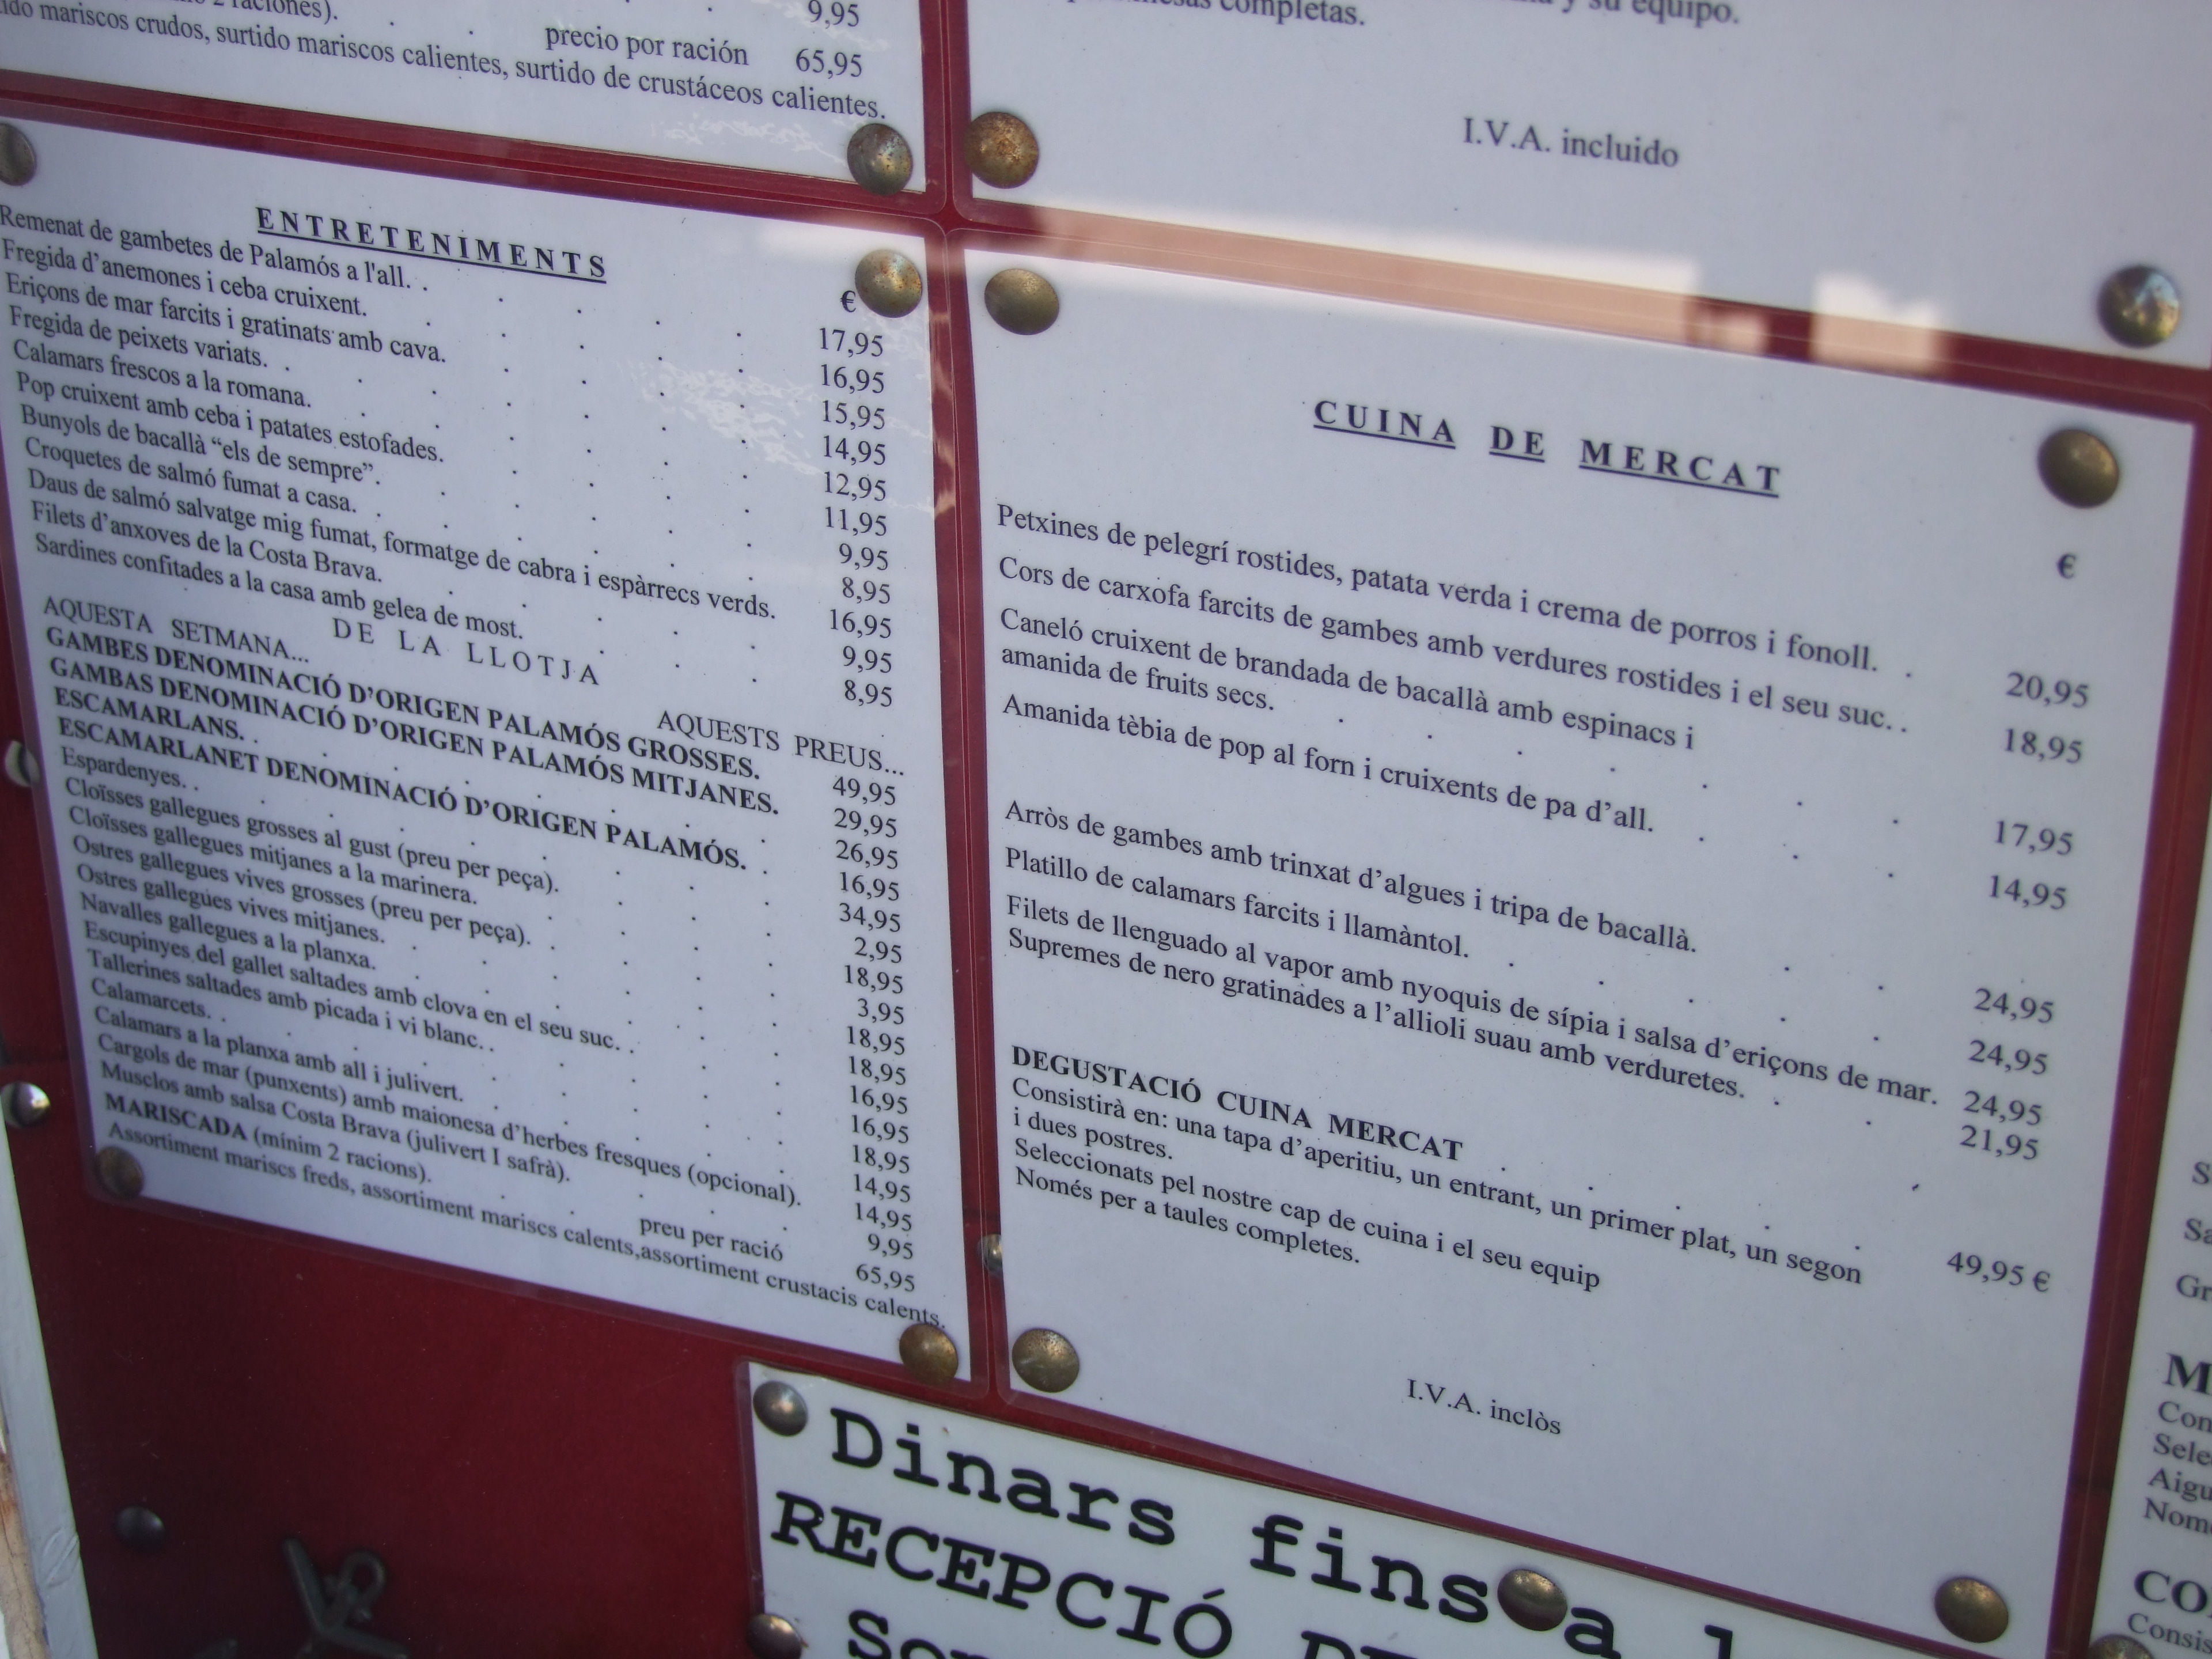 raciones).
9,95
precio por ración 65,95
mariscos crudos, surtido mariscos calientes, surtido de crustáceos calientes.
completas.
y su equipo.
I.V.A. incluido
ENTRETENIMENTS
€
Remenat de gambetes de Palamós a l'all. . 17,95
Fregida d’anemones i ceba cruixent. 16,95
Eriçons de mar farcits i gratinats amb cava. 15,95
Fregida de peixets variats. . 14,95
Calamars frescos a la romana. 12,95
Pop cruixent amb ceba i patates estofades. 11,95
Bunyols de bacallà “els de sempre”. 9,95
Croquetes de salmó fumat a casa. 8,95
Daus de salmó salvatge mig fumat, formatge de cabra i espàrrecs verds. 16,95
Filets d’anxoves de la Costa Brava. 9,95
Sardines confitades a la casa amb gelea de most. 8,95
DE LA LLOTJA
AQUESTA SETMANA... AQUESTS PREUS...
GAMBES DENOMINACIÓ D’ORIGEN PALAMÓS GROSSES. 49,95
GAMBAS DENOMINACIÓ D’ORIGEN PALAMÓS MITJANES. 29,95
ESCAMARLANS. . 26,95
ESCAMARLANET DENOMINACIÓ D’ORIGEN PALAMÓS. . 16,95
Espardenyes. . 34,95
Cloïsses gallegues grosses al gust (preu per peça). 2,95
Cloïsses gallegues mitjanes a la marinera. 18,95
Ostres gallegues vives grosses (preu per peça). . 3,95
Ostres gallegues vives mitjanes. 18,95
Navalles gallegues a la planxa. 18,95
Escupinyes del gallet saltades amb clova en el seu suc. . 16,95
Tallerines saltades amb picada i vi blanc. . 16,95
Calamarcets. . 18,95
Calamars a la planxa amb all i julivert. 14,95
Cargols de mar (punxents) amb maionesa d’herbes fresques (opcional). 14,95
Musclos amb salsa Costa Brava (julivert I safrà). 9,95
MARISCADA (mínim 2 racions). preu per ració 65,95
Assortiment mariscs freds, assortiment mariscs calents,assortiment crustacis calents.
CUINA DE MERCAT
€
Petxines de pelegrí rostides, patata verda i crema de porros i fonoll. . 20,95
Cors de carxofa farcits de gambes amb verdures rostides i el seu suc. . 18,95
Caneló cruixent de brandada de bacallà amb espinacs i
amanida de fruits secs. 17,95
Amanida tèbia de pop al forn i cruixents de pa d’all. 14,95
Arròs de gambes amb trinxat d’algues i tripa de bacallà. 24,95
Platillo de calamars farcits i llamàntol. 24,95
Filets de llenguado al vapor amb nyoquis de sípia i salsa d’eriçons de mar. 24,95
Supremes de nero gratinades a l’allioli suau amb verduretes. 21,95
DEGUSTACIÓ CUINA MERCAT 49,95 €
Consistirà en: una tapa d’aperitiu, un entrant, un primer plat, un segon
i dues postres.
Seleccionats pel nostre cap de cuina i el seu equip
Només per a taules completes.
I.V.A. inclòs
Dinars fins a
RECEPCIÓ